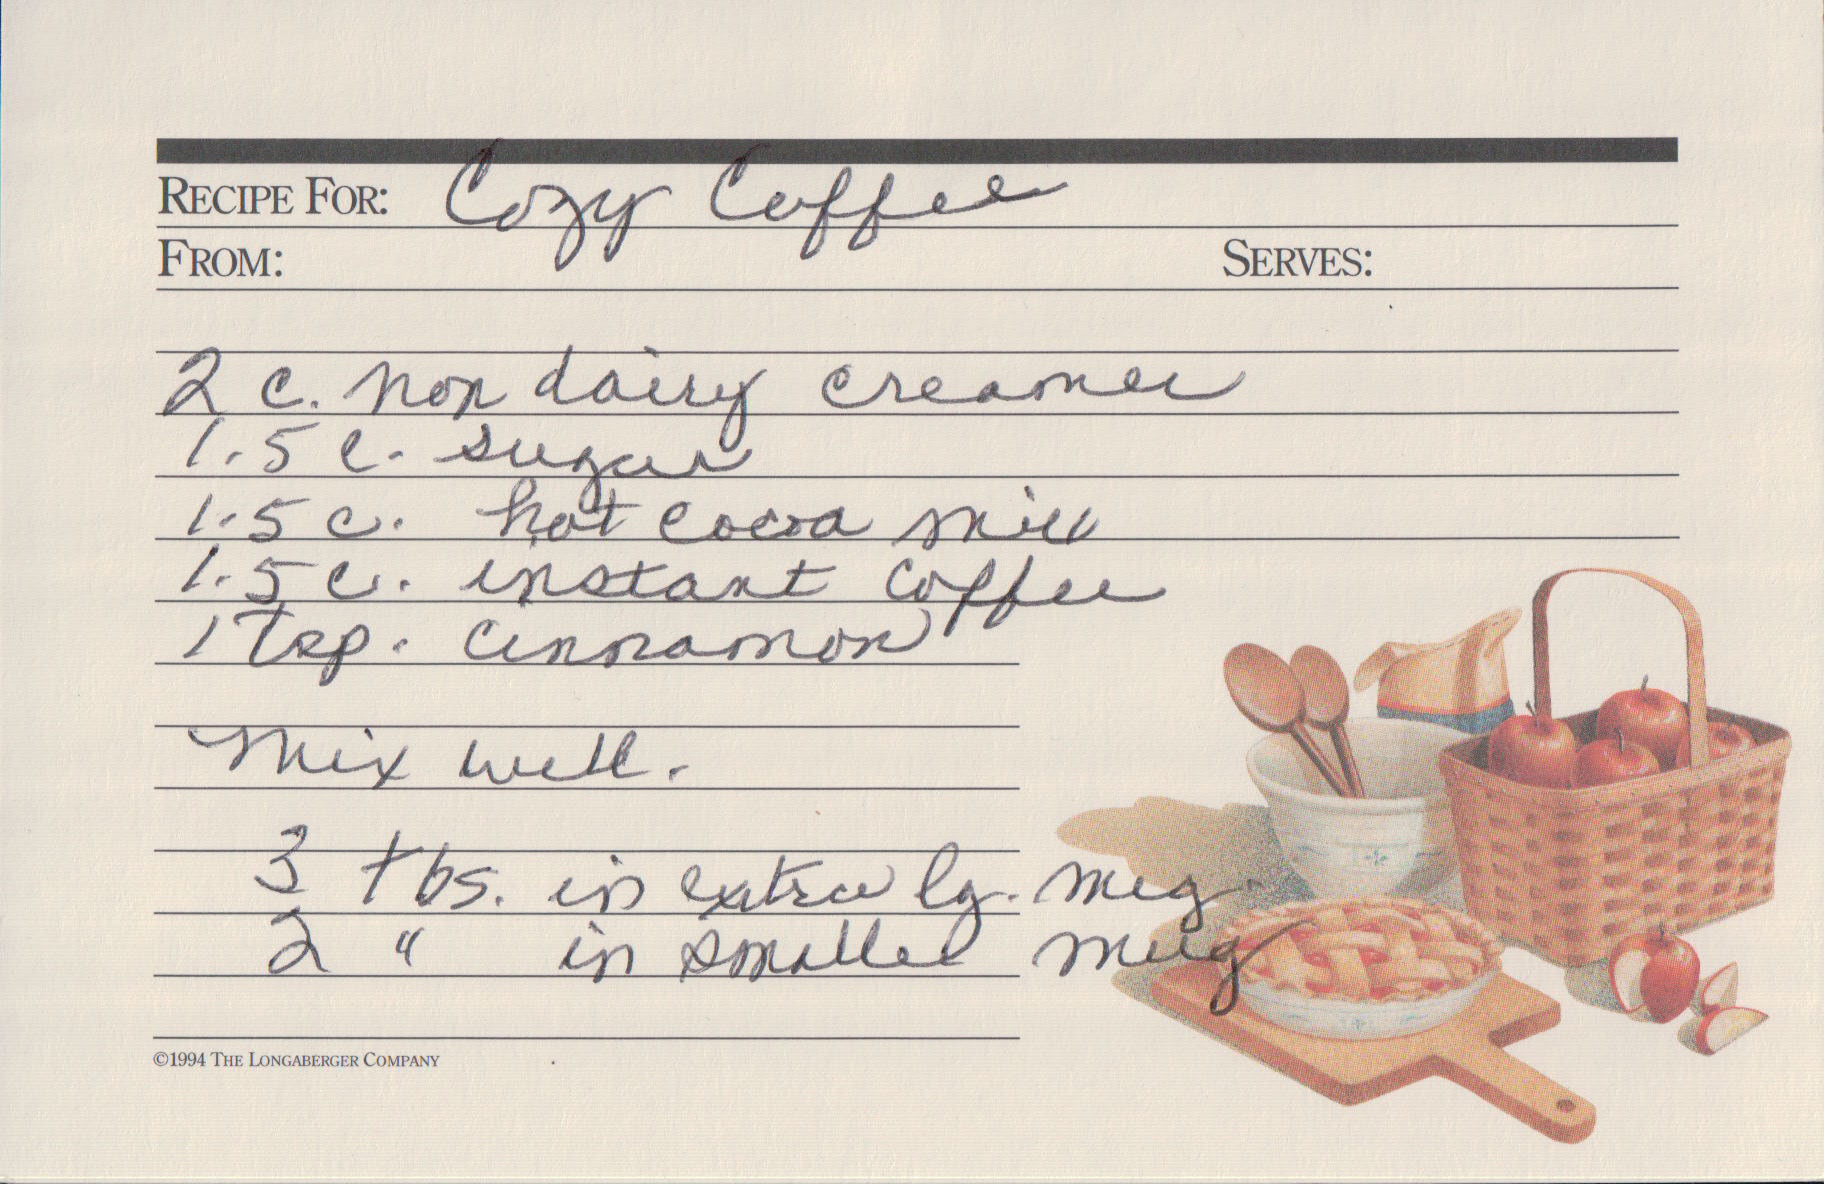 RECIPE FOR: Cozy Coffee
FROM: SERVES:
2 c. non dairy creamer
1.5 c. sugar
1.5 c. hot cocoa mix
1.5 c. instant coffee
1 Tsp. cinnamon
Mix well.
3 tbs. in extra lg. mug.
2 " in smaller mug
©1994 THE LONGABERGER COMPANY